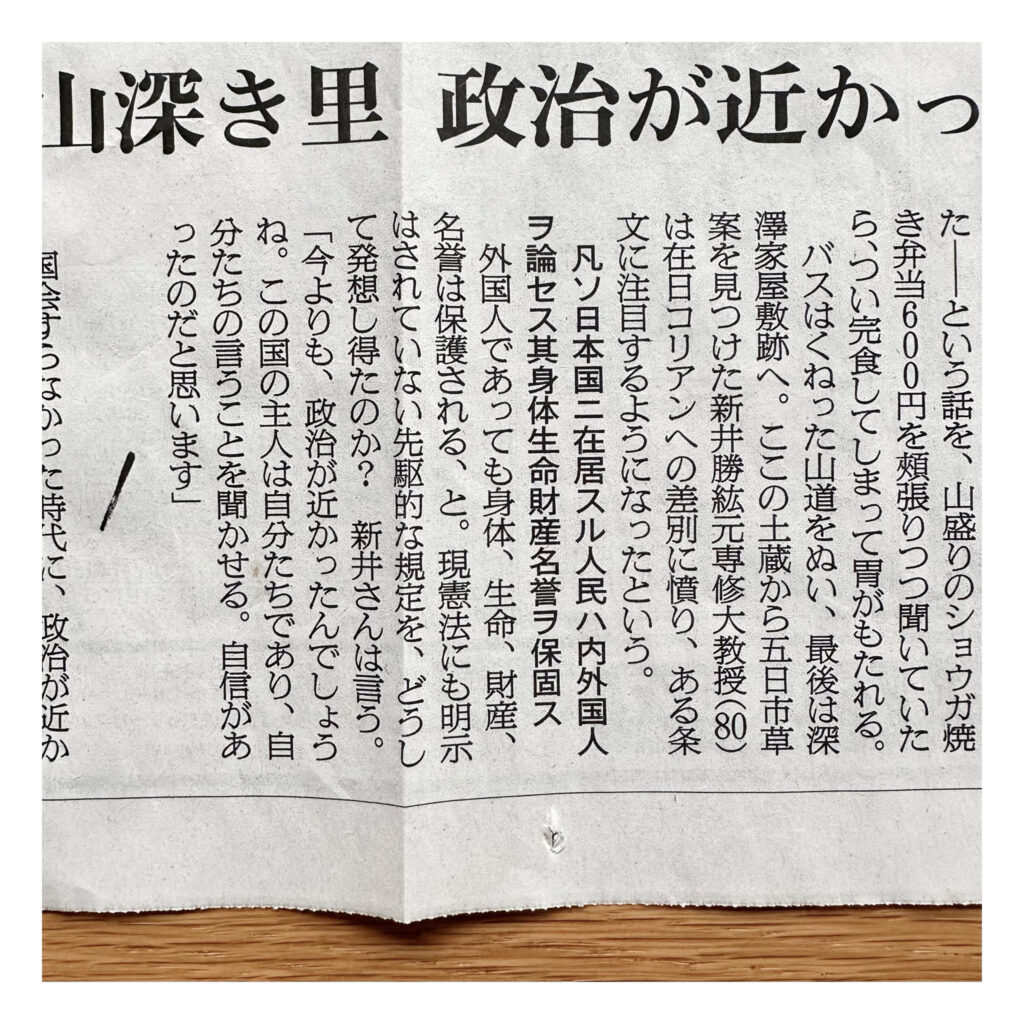 山深き里 政治が近かっ
た――という話を、山盛りのショウガ焼
き弁当600円を頰張りつつ聞いていた
ら、つい完食してしまって胃がもたれる。
バスはくねった山道をぬい、最後は深
澤家屋敷跡へ。ここの土蔵から五日市草
案を見つけた新井勝紘元専修大教授(80)
は在日コリアンへの差別に憤り、ある条
文に注目するようになったという。
凡ソ日本国ニ在居スル人民ハ内外国人
ヲ論セス其身体生命財産名誉ヲ保固ス
外国人であっても身体、生命、財産、
名誉は保護される、と。現憲法にも明示
はされていない先駆的な規定を、どうし
て発想し得たのか? 新井さんは言う。
「今よりも、政治が近かったんでしょう
ね。この国の主人は自分たちであり、自
分たちの言うことを聞かせる。自信があ
ったのだと思います」
国会すらなかった時代に、政治が近か